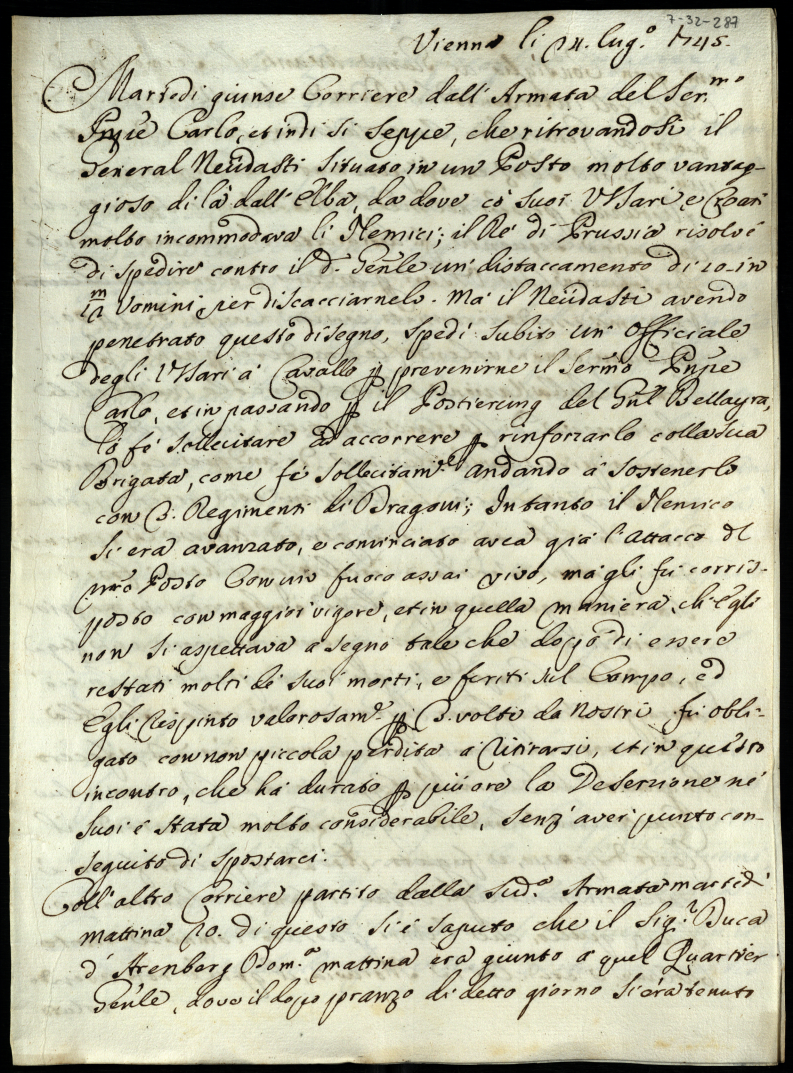 7-32-287
Vienna li 24. Lug.º 1745.
Martedi giunse Corriere dall'Armata del Ser.mo
Pnpe Carlo, et indi si seppe, che ritrovandosi il
General Neüdasti situato in un Posto molto vantag-
gioso di là dall'Elba, da dove co' suoi Ussari, e
molto incommodava li Nemici; il Rè di Prussia risolvè
di spedire contro il d.º Gen̄le un distaccamento di 10. in
12 m Uomini per discacciarnelo. Mà il Neüdasti avendo
penetrato questo disegno, spedì subito un' Officiale
degli Ussari à Cavallo p prevenirne il Sermo Pnpe
Carlo, et in passando p il Postierung del Gnl Bellayra,
lo fè sollecitare ad accorrere p rinforzarlo colla sua
Brigata, come fè sollecitam.te andando à sostenerlo
con 3. Regimenti di Dragoni; Intanto il Nemico
si era avanzato, e cominciato avea già l'attacco del
nrõ Posto con un fuoco assai vivo, mà gli fù corris-
posto con maggior vigore, et in quella maniera, ch'Egli
non si aspettava à segno tale che dopò di essere
restati molti de' suoi morti, e feriti sul Campo, ed
Egli respinto valorosam.te p 3. volte da Nostri fù obli-
gato con non piccola perdita à ritirarsi, et in questo
incontro, che hà durato p più ore la Deserzione ne'
suoi è stata molto considerabile, senz' aver punto con-
seguito di spostarci.
Coll'altro Corriere partito dalla sud.a Armata martedì
mattina 20. di questo si è saputo che il Sig.r Duca
d'Arenberg Dom.a mattina era giunto a quel Quartier
Gen̄le, dove il dopo pranzo di detto giorno si era tenuto